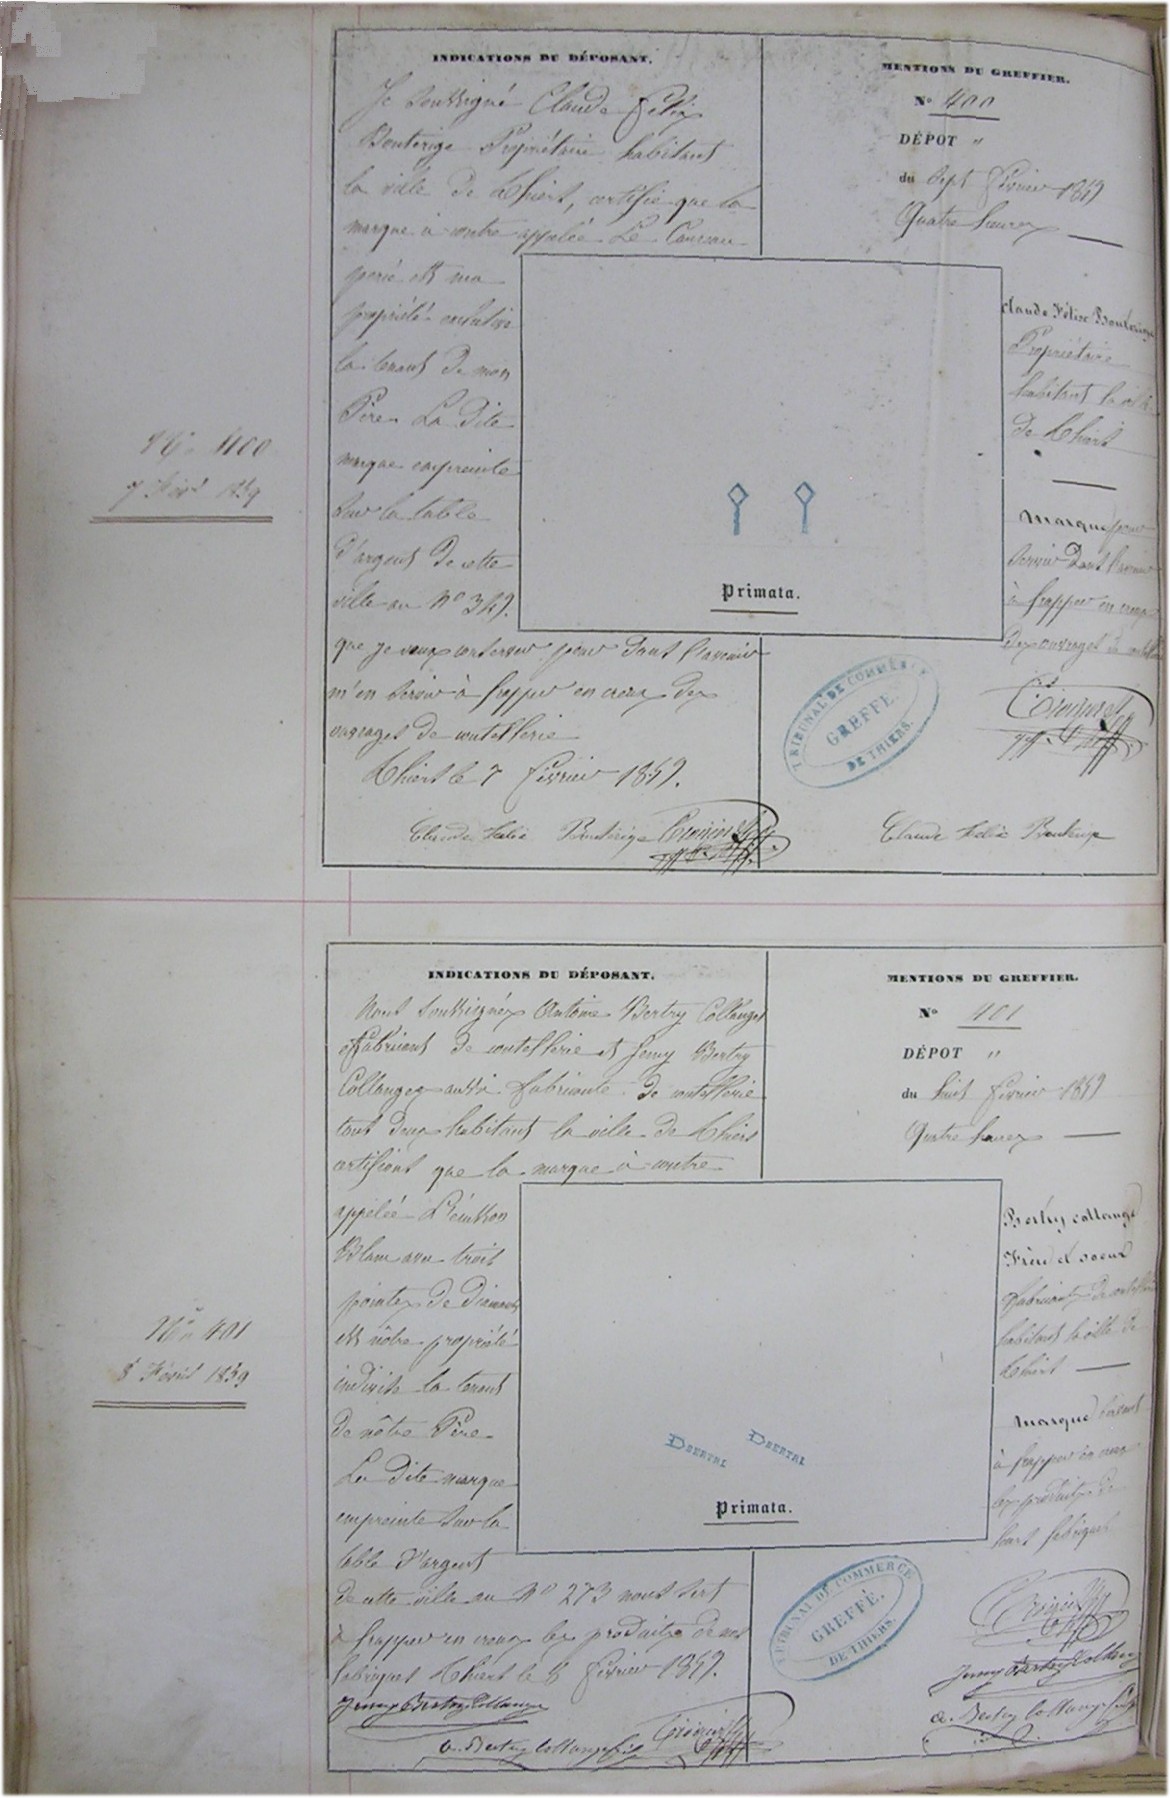 INDICATIONS DU DÉPOSANT.
Je soussigné Claude Félix
Bouterige Propriétaire habitant
la ville de Thiers, certifie que la
marque à contre appelée Le Carreau
percé est ma
propriété
la tenant de mon
Père La dite
marque empreinte
sur la table
d'argent de cette
ville au No 347.
que je veux conserver pour dans l'avenir
m'en servir à frapper en creux des
ouvrages de coutellerie
Thiers le 7 Février 1859.
Claude Felix Bouterige
MENTIONS DU GREFFIER.
No 400
DÉPOT "
du Sept Février 1859
Quatre heures
Claude Félix Bouterige
Propriétaire
habitant la ville
de Thiers
Marque pour
servir dans l'avenir
à frapper en creux
des ouvrages de
Primata.
TRIBUNAL DE COMMERCE
GREFFE.
DE THIERS.
Claude Felix Bouterige
No 400
7 Févr 1859
INDICATIONS DU DÉPOSANT.
Nous soussignés Antoine Bertry Collange
fabricant de coutellerie et Jenny Bertry
Collange aussi fabricante de coutellerie
tous deux habitant la ville de Thiers
certifions que la marque à contre
appelée L'écusson
Blanc avec trois
pointes de Diamants
est nôtre propriété
indivise la tenant
de nôtre Père
La dite marque
empreinte sur la
table d'argent
de cette ville au No 273 nous sert
à frapper en creux les produits de nos
fabriques Thiers le 8 Février 1859.
Jenny Bertry Collange
a. Bertry Collange fils
MENTIONS DU GREFFIER.
No 401
DÉPOT "
du huit Février 1859
Quatre heures
Bertry collange
Frère et soeur
fabricants de coutellerie
habitant la ville de
Thiers
Marque servant
à frapper en creux
les produits de
leurs fabriques
DBERTRI
DBERTRI
Primata.
TRIBUNAL DE COMMERCE
GREFFE.
DE THIERS.
Jenny Bertry Collange
a. Bertry Collange fils
No 401
8 Février 1859